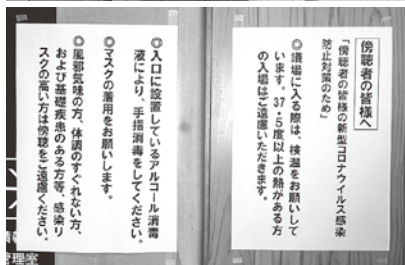 傍聴者の皆様へ
「傍聴者の皆様の新型コロナウイルス感染
防止対策のため」
◎議場に入る際は、検温をお願いして
います。37・5度以上の熱がある方
の入場はご遠慮いただきます。
◎入口に設置しているアルコール消毒
液により、手指消毒をしてください。
◎マスクの着用をお願いします。
◎風邪気味の方、体調のすぐれない方、
および基礎疾患のある方等、感染リ
スクの高い方は傍聴をご遠慮ください。
管理室